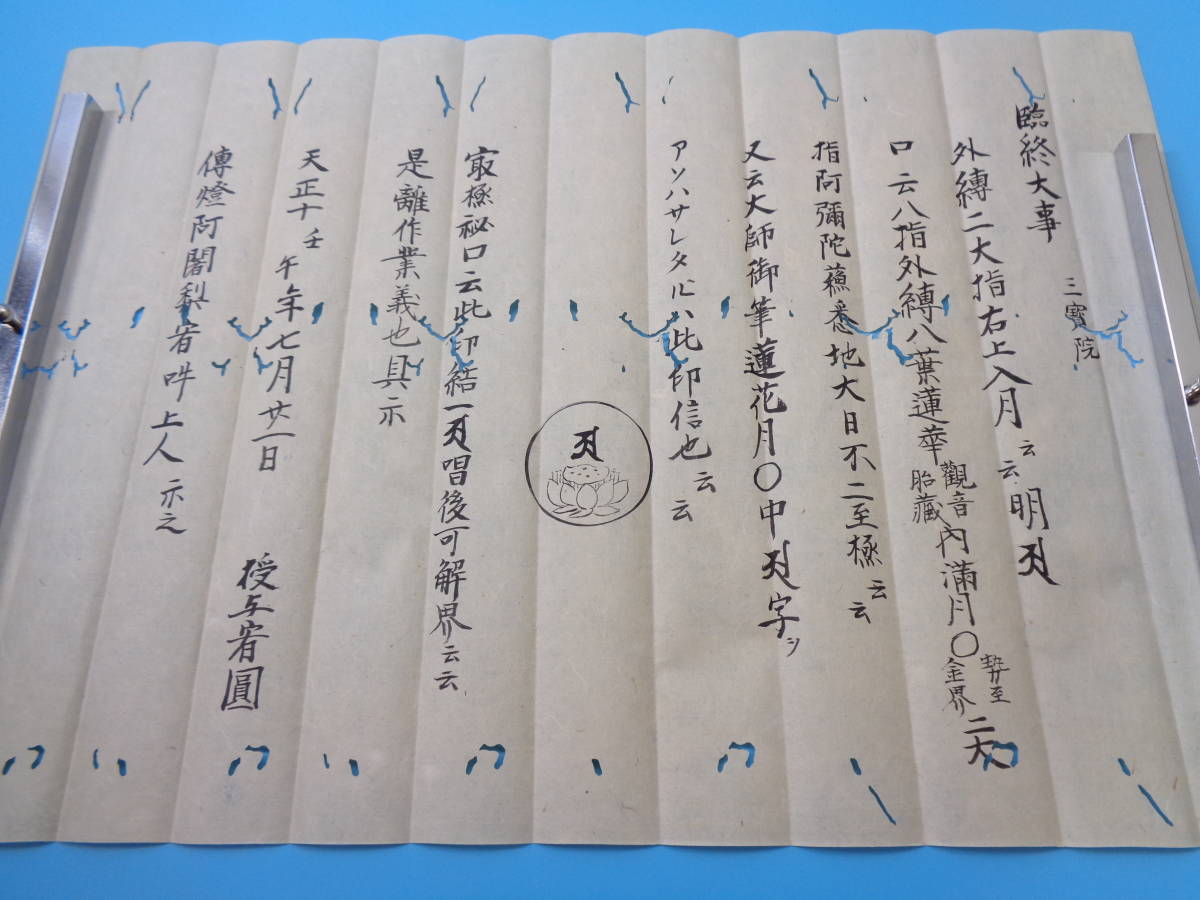 臨終大事 三寶院
外縛二大指右上入月云云 明𑖮𑖿𑖨𑖱𑖾
口云八指外縛八葉蓮華 觀音胎藏 内滿月〇 勢至金界 二大
指阿彌陀蘓悉地大日不二至極云云
又云大師御筆蓮花月〇中𑖮𑖿𑖨𑖱𑖾字ヲ
アソハサレタルハ此印信也云云
𑖮𑖿𑖨𑖱𑖾
冣極秘口云此印結一𑖮𑖿𑖨𑖱𑖾唱後可解界云云
是離作業義也具示
天正十壬午年七月廿一日 授与宥圓
傳燈阿闍梨宥吽上人示之